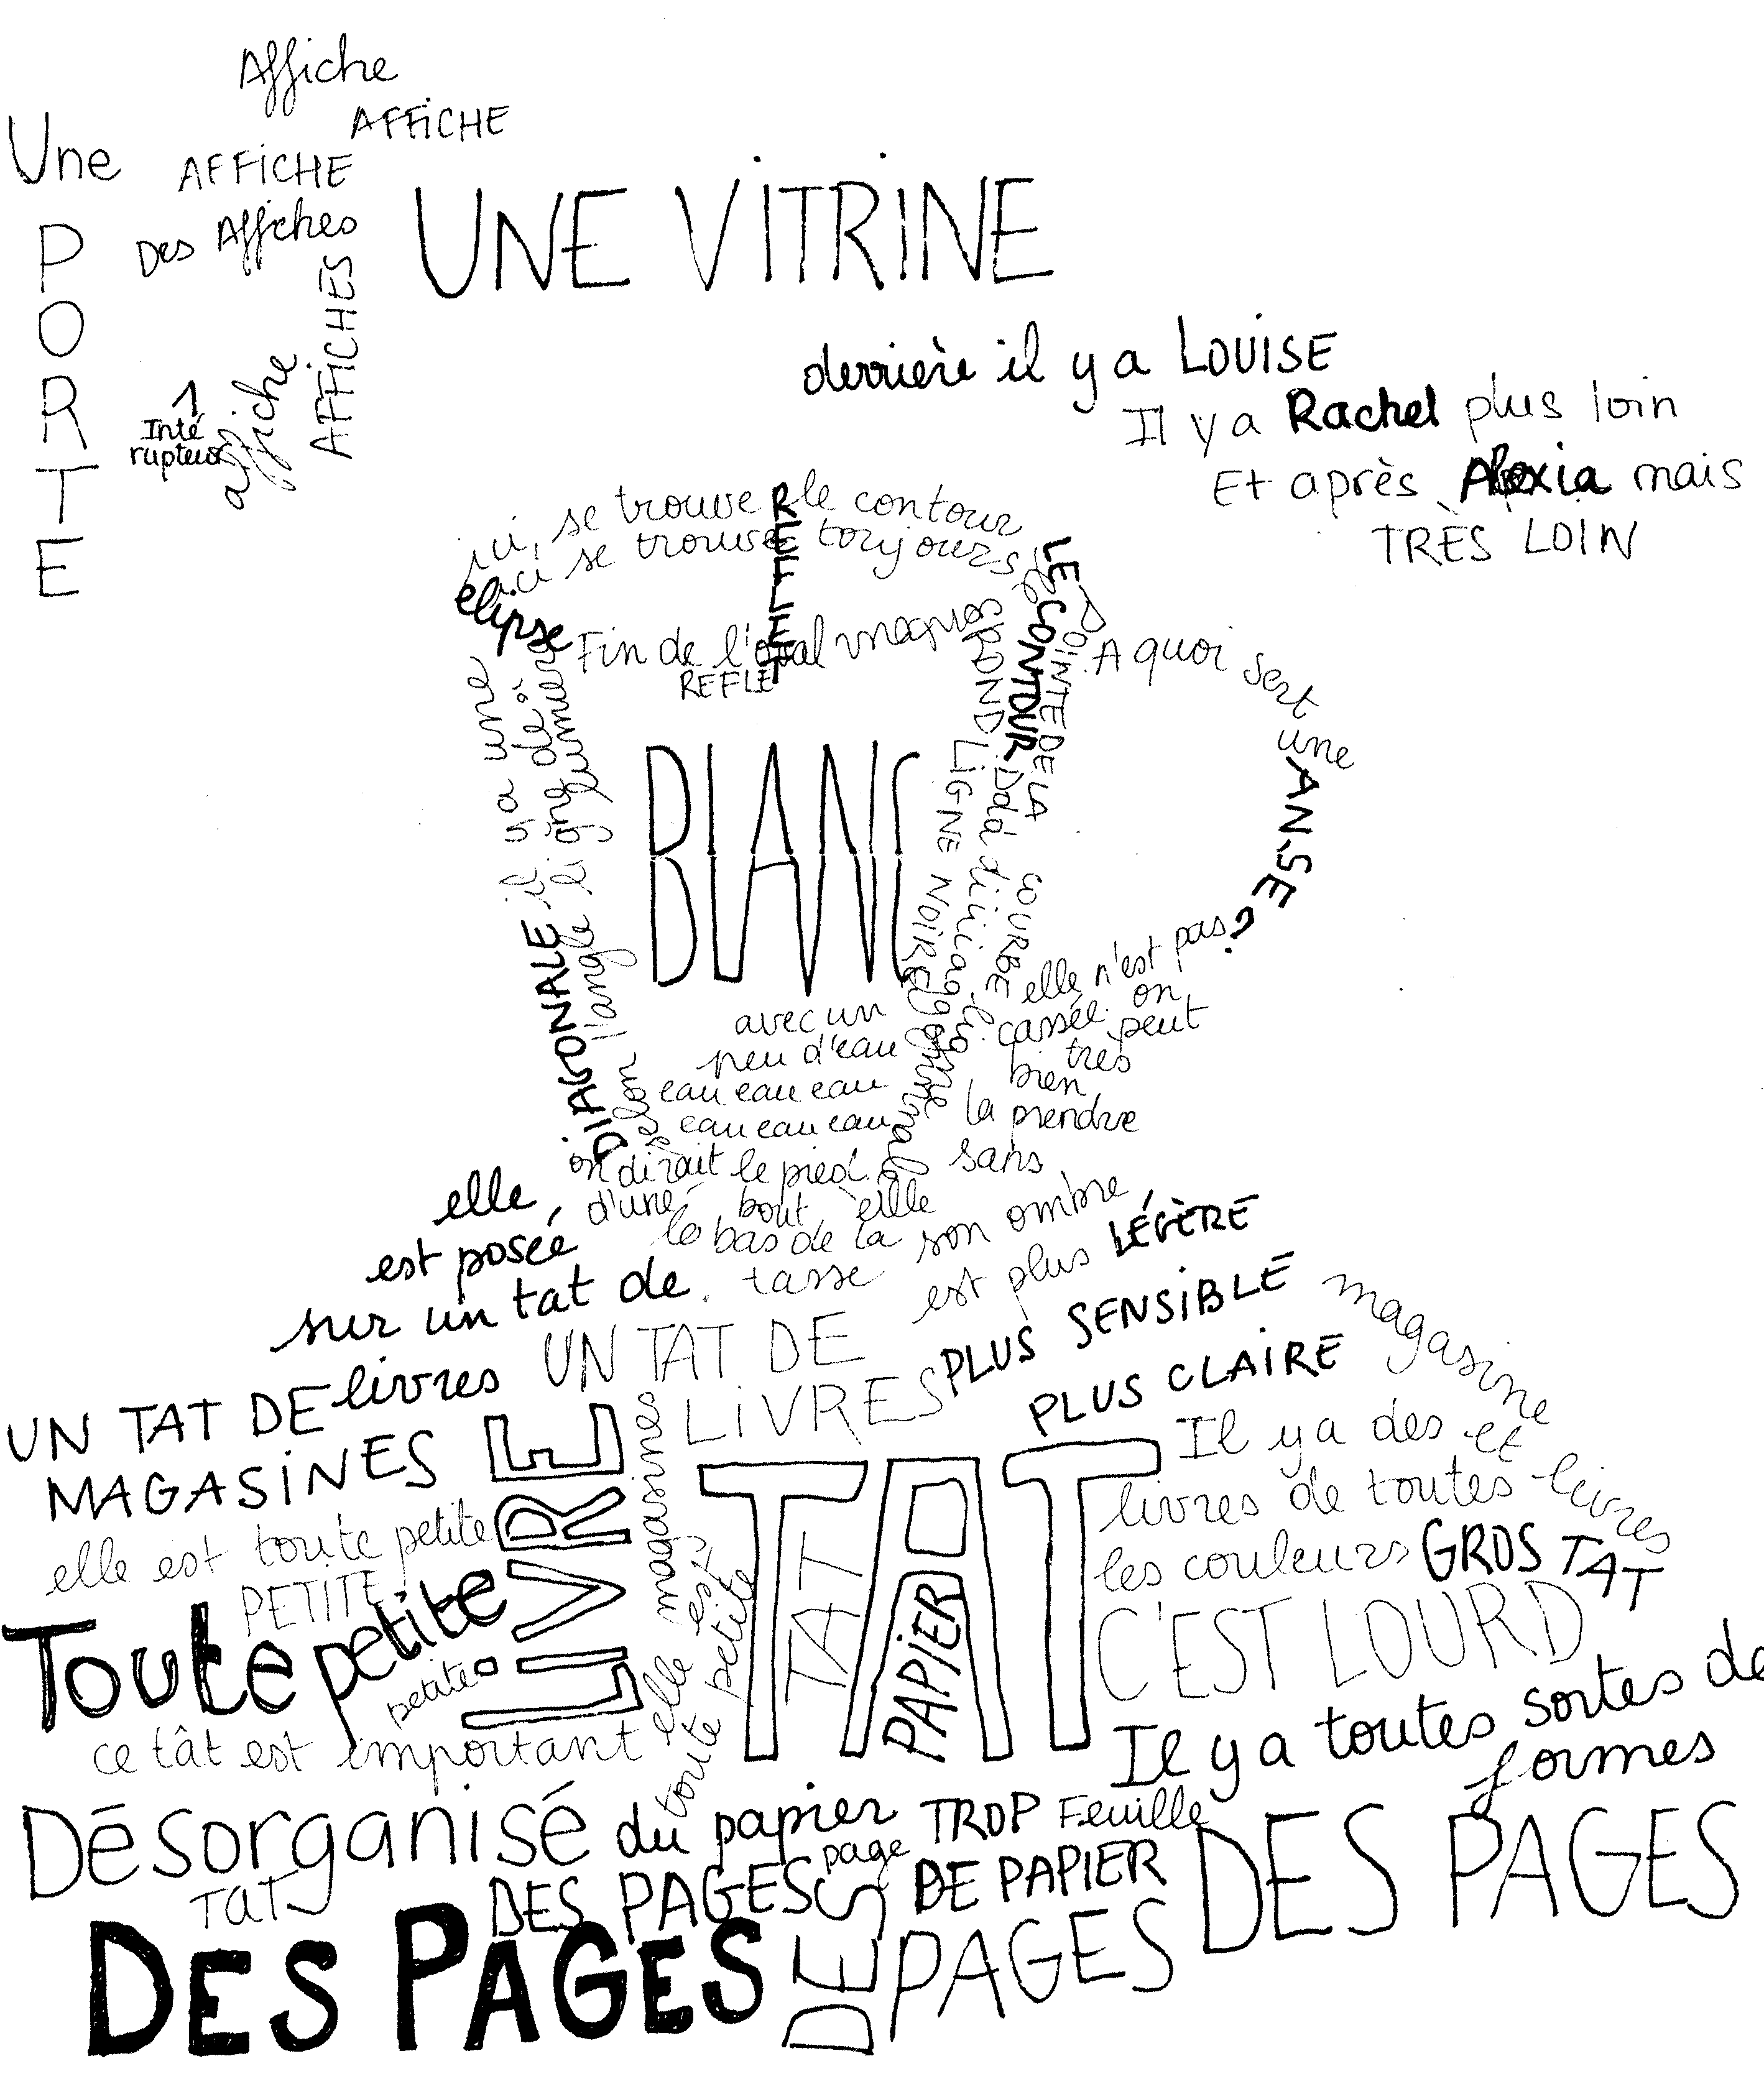 Affiche
AFFICHE
Une
AFFICHE
Des Affiches
PORTE
AFFICHES
affiche
Inté
rupteur
UNE VITRINE
derrière il y a LOUISE
Il y a Rachel plus loin
Et après Alexia mais
TRÈS LOIN
ici, se trouve le contour
ici se trouve toujours le
elipse
REFLET
Fin de l'oval
REFLET
LE CONTOUR
POINTE DE LA COURBE
GROND LIGNE NOIRE
A quoi sert une ANSE ?
BLANC
il y a une
DIAGONALE
selon l'angle
ligne de
lumière
elle n'est pas
cassée. on
peut
très
bien
la prendre
sans
avec un
peu d'eau
eau eau eau
eau eau eau
on dirait le pied
d'une bouteille
le bas de la
tasse
son ombre
est plus LÉGÈRE
PLUS SENSIBLE
PLUS CLAIRE
elle
est posée
sur un tat de
livres
UN TAT DE
LIVRES
UN TAT DE
MAGASINES
magasine
et
livres
LIVRE
magasines
TAT
TAT
PAPIER
Il y a des
livres de toutes
les couleurs GROS TAT
C'EST LOURD
elle est toute petite
PETITE
Toute petite
petite
elle est
toute petite
ce tât est important
Il y a toutes sortes de
formes
Désorganisé
TAT
du papier TROP Feuille
page
DE PAPIER
DES PAGES
DES PAGES
DES PAGES
DES PAGES